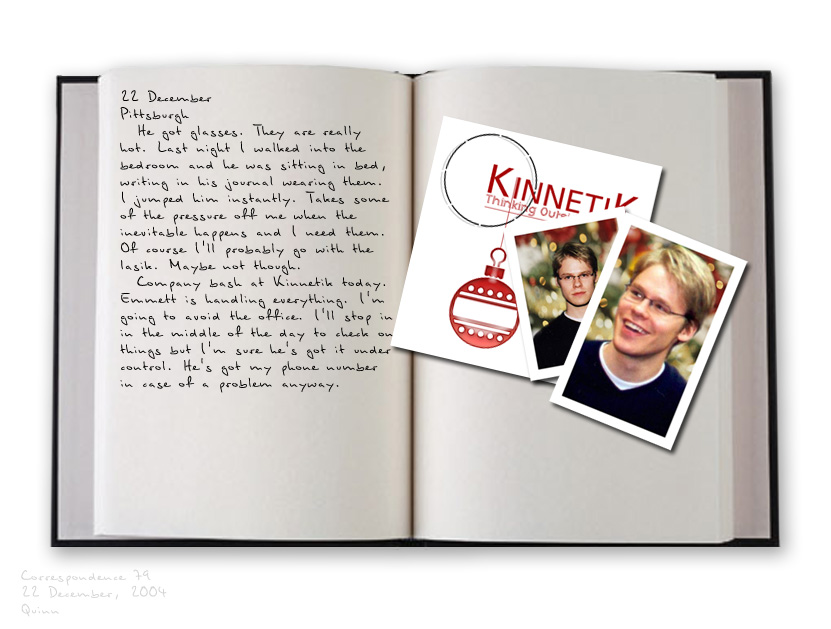 22 December
Pittsburgh
He got glasses. They are really
hot. Last night I walked into the
bedroom and he was sitting in bed,
writing in his journal wearing them.
I jumped him instantly. Takes some
of the pressure off me when the
inevitable happens and I need them.
Of course I'll probably go with the
lasik. Maybe not though.
Company bash at Kinnetik today.
Emmett is handling everything. I'm
going to avoid the office. I'll stop in
in the middle of the day to check on
things but I'm sure he's got it under
control. He's got my phone number
in case of a problem anyway.
KINNETIK
Thinking Outs
Correspondence 79
22 December, 2004
Quinn